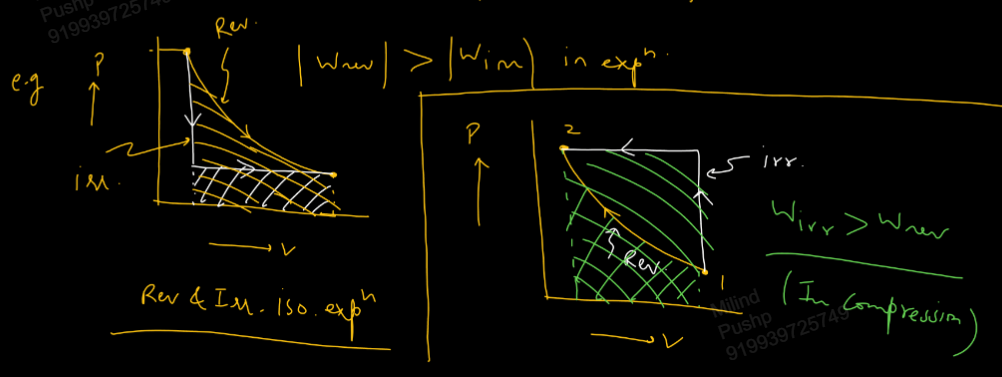 Pushp
919939725749
e.g
P
Rev.
|Wrev| > |Wirr| in expⁿ.
irr.
V
Rev & Irr. iso. expⁿ
P
2
irr.
Rev.
1
V
Wirr > Wrev
(In compression)
Milind
Pushp
919939725749